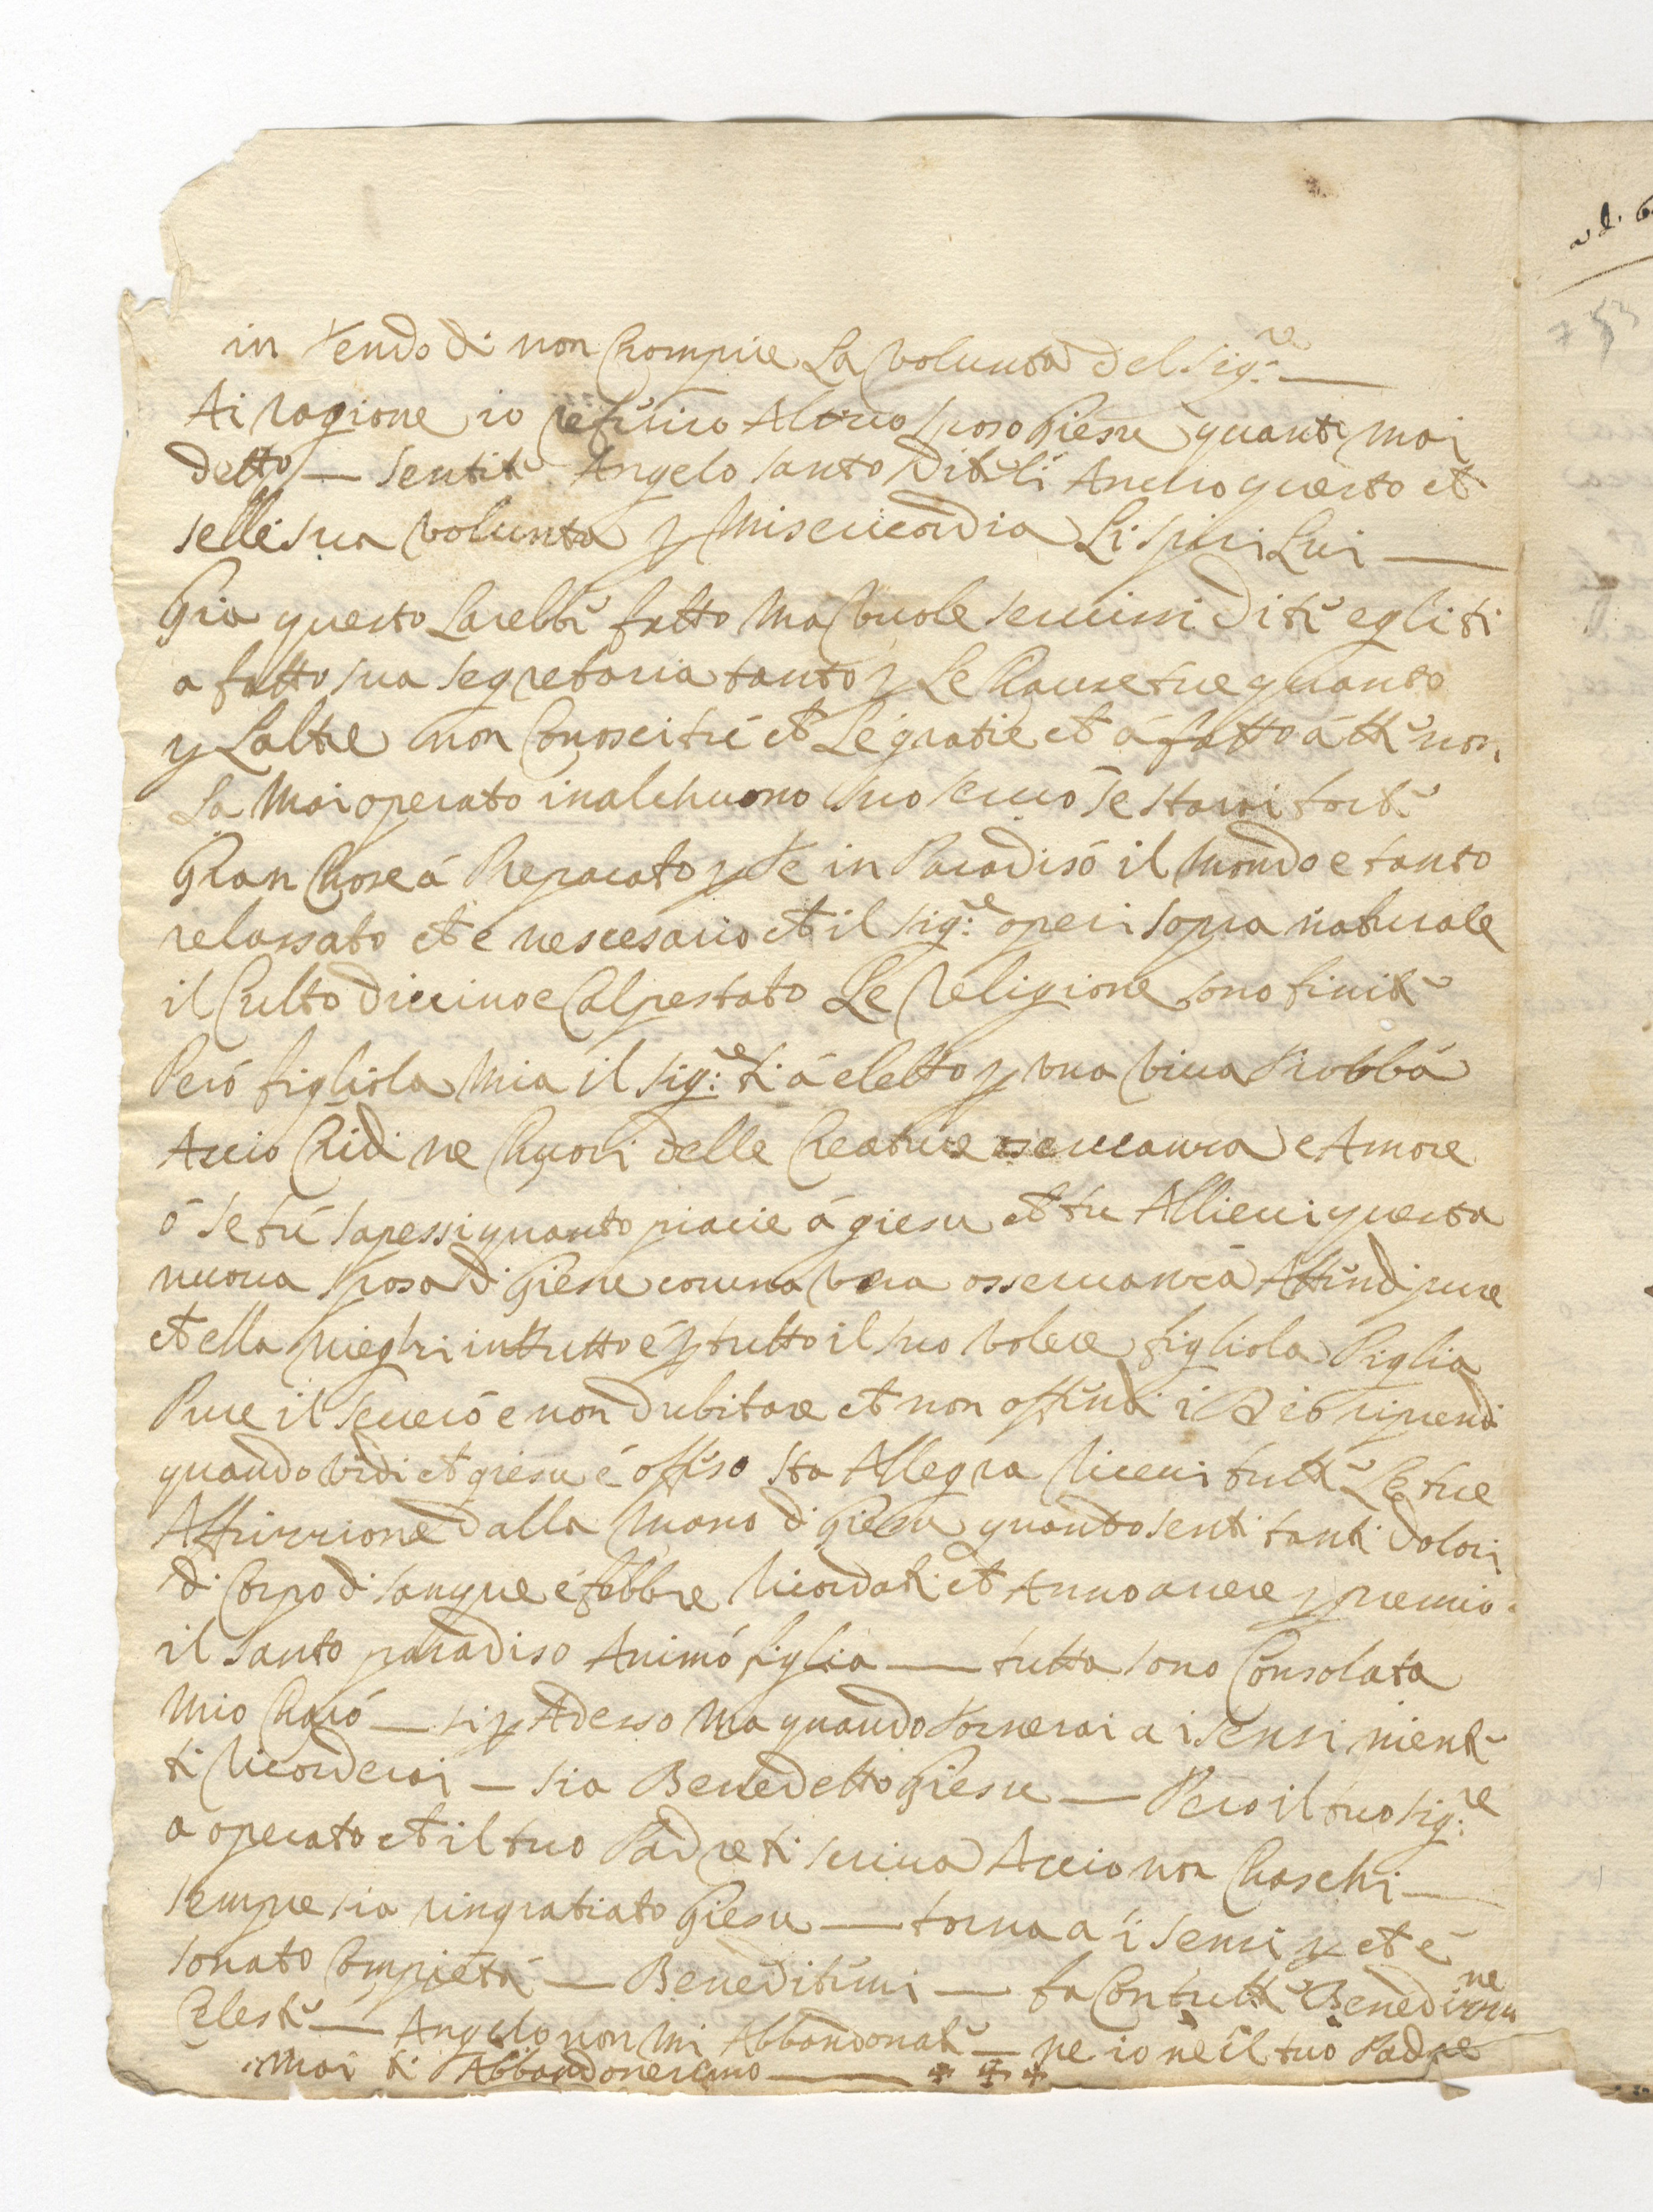 in tendo di non Chompire La Volunta del Sigre
Ai ragione io refirirò Altuo Sposo Giesu quanto mai
detto — Sentite Angelo Santo Diteli Ancho questo et
selle sua Volunta p Misericordia Li Spiri Lui —
Gia questo Larebbe fatto Ma Vuole Seruirsi di te egli ti
a fatto sua Segretaria tanto p Le Chause tue quanto
p Laltre non Conosci tu et Le gratie et á fatto á tte non
La Mai operato in alchuono suo Seruo se starai forte
Gran Chose á Preparato p Te in Paradiso il Mondo e tanto
relassato et e nescesario et il Sigre operi sopra naturale
il Culto diuino e Calpestato Le Religione sono finite
Peró figliola Mia il Sigre ti á eletto p una Viua
Accio Cridi ne Chuori delle Creature oseruanza e Amore
ó Se tú Sapessi quanto piacie á giesu et tu Allieui questa
nuoua Sposa di Giesu con una Vera osseruanza Attendi pure
et ella Pieghi in tutto é p tutto il suo Volere figliola Piglia
Pure il Seueró e non dubitare et non offendi i Dio riprendi
quando Vidi et giesu é offeso Sta Allegra Riceui tutte Le tue
Affrizzione dalla Mano di Giesu quando Senti tanti Dolori
di Corpo di Sangue é febbre Ricordati et Anno auere p premio
il Santo paradiso Animó figlia — tutta Sono Consolata
Mio Charó — si p Adesso Ma quando Tornerai a i Sensi niente
ti Ricorderai — Sia Benedetto Giesu — Pero il tuo Sigre
a operato et il tuo Padre ti Scriua Accio non Chaschi —
Sempre Sia ringratiato Giesu — torna a i Sensi p et é
Sonato Compietá — Beneditimi — fa Con tutte Benedizione
Celeste — Angelo non Mi Abbandonate — ne io ne il tuo Padre
Mai ti Abbandoneremo —